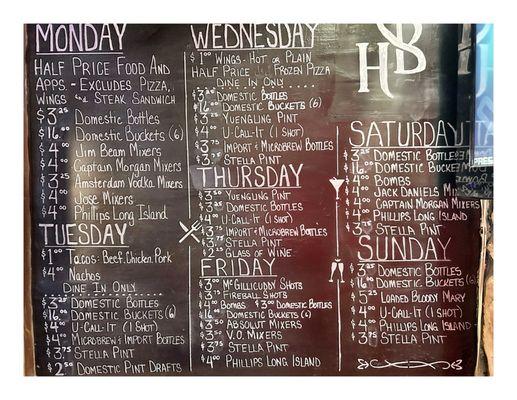 MONDAY
HALF PRICE FOOD AND
APPS. - EXCLUDES PIZZA,
WINGS and STEAK SANDWICH
$3.25 DOMESTIC BOTTLES
$16.00 DOMESTIC BUCKETS (6)
$4.00 JIM BEAM MIXERS
$4.00 CAPTAIN MORGAN MIXERS
$3.00 AMSTERDAM VODKA MIXERS
$4.00 JOSE MIXERS
$4.00 PHILLIPS LONG ISLAND
TUESDAY
$1.00 TACOS: BEEF, CHICKEN, PORK
$4.00 NACHOS
DINE IN ONLY
$3.25 DOMESTIC BOTTLES
$16.00 DOMESTIC BUCKETS (6)
$4.00 U-CALL-IT (1 SHOT)
$4.00 MICROBREW & IMPORT BOTTLES
$3.75 STELLA PINT
$2.50 DOMESTIC PINT DRAFTS
WEDNESDAY
$1.00 WINGS - HOT OR PLAIN
HALF PRICE FROZEN PIZZA
DINE IN ONLY
$3.25 DOMESTIC BOTTLES
$16.00 DOMESTIC BUCKETS (6)
$3.25 YUENGLING PINT
$4.00 U-CALL-IT (1 SHOT)
$4.00 IMPORT & MICROBREW BOTTLES
$3.75 STELLA PINT
THURSDAY
$3.50 YUENGLING PINT
$3.25 DOMESTIC BOTTLES
$4.00 U-CALL IT (1 SHOT)
$4.00 IMPORT & MICROBREW BOTTLES
$3.75 STELLA PINT
GLASS OF WINE
FRIDAY
$3.00 MCGILLICUDDY SHOTS
FIREBALL SHOTS
$4.00 BOMBS $3.00 DOMESTIC BOTTLES
$16.00 DOMESTIC BUCKETS (6)
$3.50 ABSOLUT MIXERS
$3.50 V.O. MIXERS
$3.75 STELLA PINT
$4.00 PHILLIPS LONG ISLAND
HB
SATURDAY
$3.25 DOMESTIC BOTTLES
$16.00 DOMESTIC BUCKETS
$4.00 BOMBS
$4.00 JACK DANIELS
$4.00 CAPTAIN MORGAN MIXERS
$4.00 PHILLIPS LONG ISLAND
$3.75 STELLA PINT
SUNDAY
$3.25 DOMESTIC BOTTLES
$16.00 DOMESTIC BUCKETS (6)
$5.25 LOADED BLOODY MARY
$4.00 U-CALL-IT (1 SHOT)
$4.00 PHILLIPS LONG ISLAND
$3.75 STELLA PINT
FREE